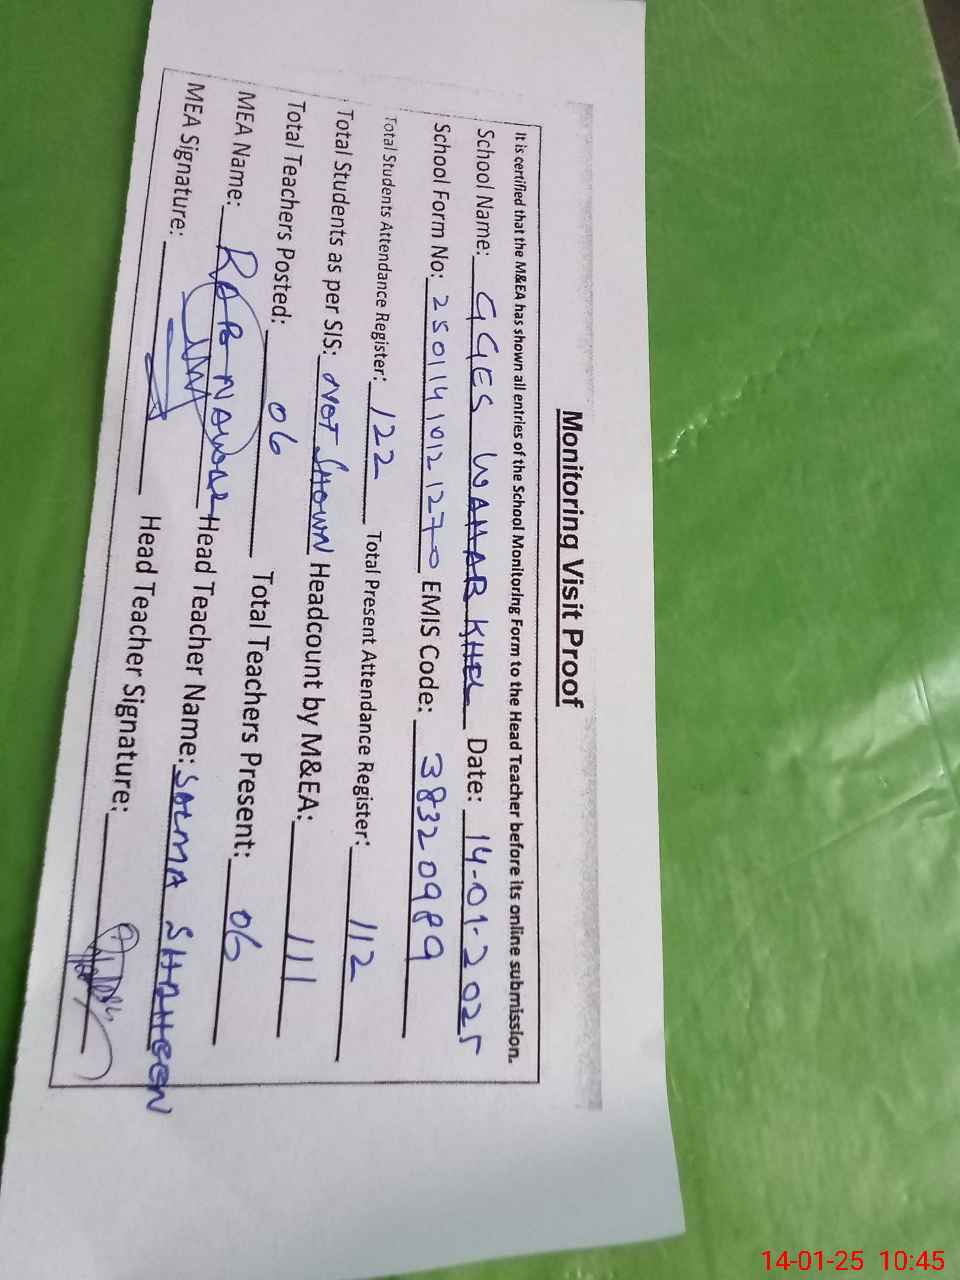 Monitoring Visit Proof
It is certified that the M&EA has shown all entries of the School Monitoring Form to the Head Teacher before its online submission.
School Name: GGES WAHAB KHEL Date: 14-01-2025
School Form No: 25011410121270 EMIS Code: 38320989
Total Students Attendance Register: 122 Total Present Attendance Register: 112
Total Students as per SIS: NOT SHOWN Headcount by M&EA: 111
Total Teachers Posted: 06 Total Teachers Present: 06
MEA Name: RAB NAWAZ Head Teacher Name: SALMA SHAHEEN
MEA Signature: Head Teacher Signature:
14-01-25 10:45